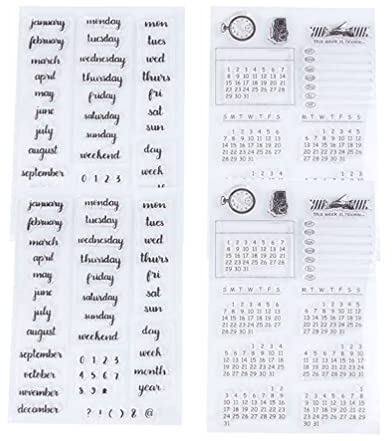 january monday mon
february tuesday tues
march wednesday wed
april thursday thurs
may friday fri
june saturday sat
july sunday sun
august weekend day
september 0 1 2 3 week
THIS WEEK IS TICKIN...
1 2 3 4 5 6 7
8 9 10 11 12 13 14
15 16 17 18 19 20 21
22 23 24 25 26 27 28
29 30 31
S M T W T F S S M T W T F S
1 2 3 4 5 6 1 2 3 4 5
7 8 9 10 11 12 13 6 7 8 9 10 11 12
14 15 16 17 18 19 20 13 14 15 16 17 18 19
21 22 23 24 25 26 27 20 21 22 23 24 25 26
28 29 30 31 27 28 29 30 31
january monday mon
february tuesday tues
march wednesday wed
april thursday thurs
may friday fri
june saturday sat
july sunday sun
august weekend day
september 0 1 2 3 week
october 4 5 6 7 month
november 8 9 year
december ? ! ( ) & @
THIS WEEK IS TICKIN...
1 2 3 4 5 6 7
8 9 10 11 12 13 14
15 16 17 18 19 20 21
22 23 24 25 26 27 28
29 30 31
S M T W T F S S M T W T F S
1 2 3 4 5 6 1 2 3 4 5
7 8 9 10 11 12 13 6 7 8 9 10 11 12
14 15 16 17 18 19 20 13 14 15 16 17 18 19
21 22 23 24 25 26 27 20 21 22 23 24 25 26
28 29 30 31 27 28 29 30 31
1 2 3 4 1 2 3
5 6 7 8 9 10 11 4 5 6 7 8 9 10
12 13 14 15 16 17 18 11 12 13 14 15 16 17
19 20 21 22 23 24 25 18 19 20 21 22 23 24
26 27 28 29 30 31 25 26 27 28 29 30 31
1 2 1
3 4 5 6 7 8 9 2 3 4 5 6 7 8
10 11 12 13 14 15 16 9 10 11 12 13 14 15
17 18 19 20 21 22 23 16 17 18 19 20 21 22
24 25 26 27 28 29 30 23 24 25 26 27 28 29
31 30 31